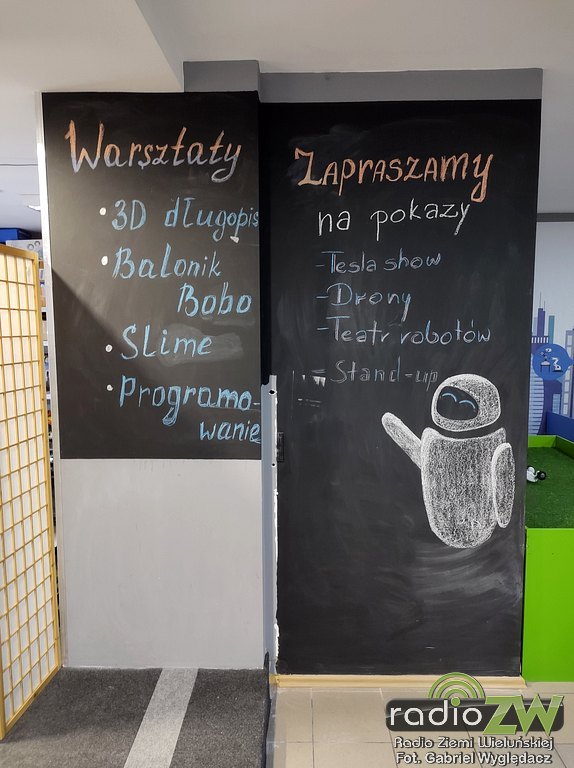 Warsztaty
• 3D długopis
• Balonik
Bobo
• Slime
• Programo-
wanie
ZAPRASZAMY
na pokazy
- Tesla show
- Drony
- Teatr robotów
- Stand-up
radio ZW
Radio Ziemi Wieluńskiej
Fot. Gabriel Wyględacz